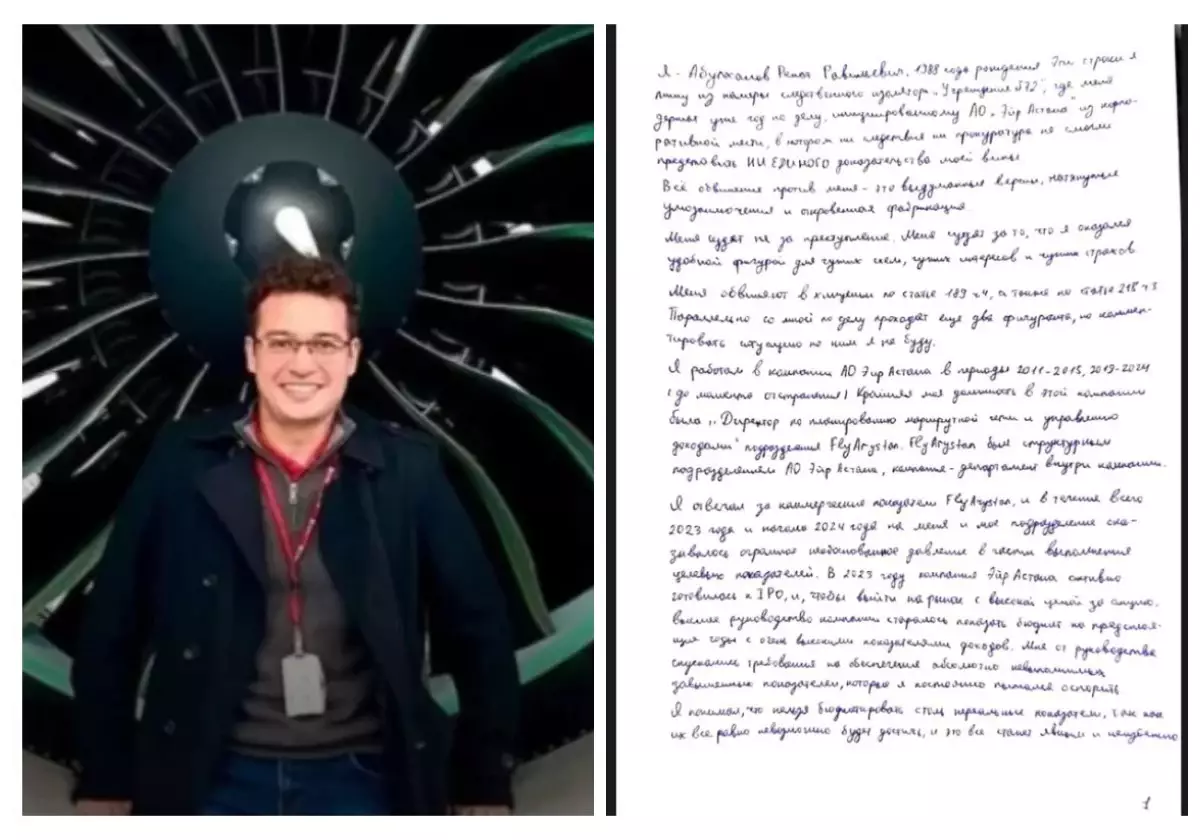 Я - Абулханов Ренат Равильевич, 1988 года рождения. Эти строки я
пишу из камеры следственного изолятора „Учреждение 72", где меня
держат уже год по делу, инициированному АО „Эйр Астана" из корпо-
ративной мести, в котором ни следствие ни прокуратура не смогли
представить НИ ЕДИНОГО доказательства моей вины
Все обвинения против меня - это выдуманные версии, натянутые
умозаключения и откровенная фабрикация
Меня судят не за преступление. Меня судят за то, что я оказался
удобной фигурой для чужих схем, чужих интересов и чужих страхов
Меня обвиняют в хищении по статье 189 ч4, а также по статье 218 ч3
Параллельно со мной по делу проходят еще два фигуранта, но коммен-
тировать ситуацию по ним я не буду.
Я работал в компании АО Эйр Астана в периоды 2011-2015, 2019-2024
(до момента отстранения) Крайняя моя должность в этой компании
была „Директор по планированию маршрутной сети и управлению
доходами" подразделения FlyArystan. FlyArystan был структурным
подразделением АО Эйр Астана, компания-департамент внутри компании.
Я отвечал за коммерческие показатели FlyArystan, и в течение всего
2023 года и начало 2024 года на меня и мое подразделение ока-
зывалось огромное необоснованное давление в части выполнения
целевых показателей. В 2023 году компания Эйр Астана активно
готовилась к IPO, и, чтобы выйти на рынок с высокой ценой за акцию,
высшее руководство компании старалось показать бюджет на предстоя-
щие годы с очень высокими показателями доходов. Мне от руководства
спускались требования на обеспечение абсолютно невыполнимых
завышенных показателей, которые я постоянно пытался оспорить
Я понимал, что нельзя бюджетировать столь нереальные показатели, так как
их все равно невозможно будет достичь, и это все станет явным и неизбежно
1